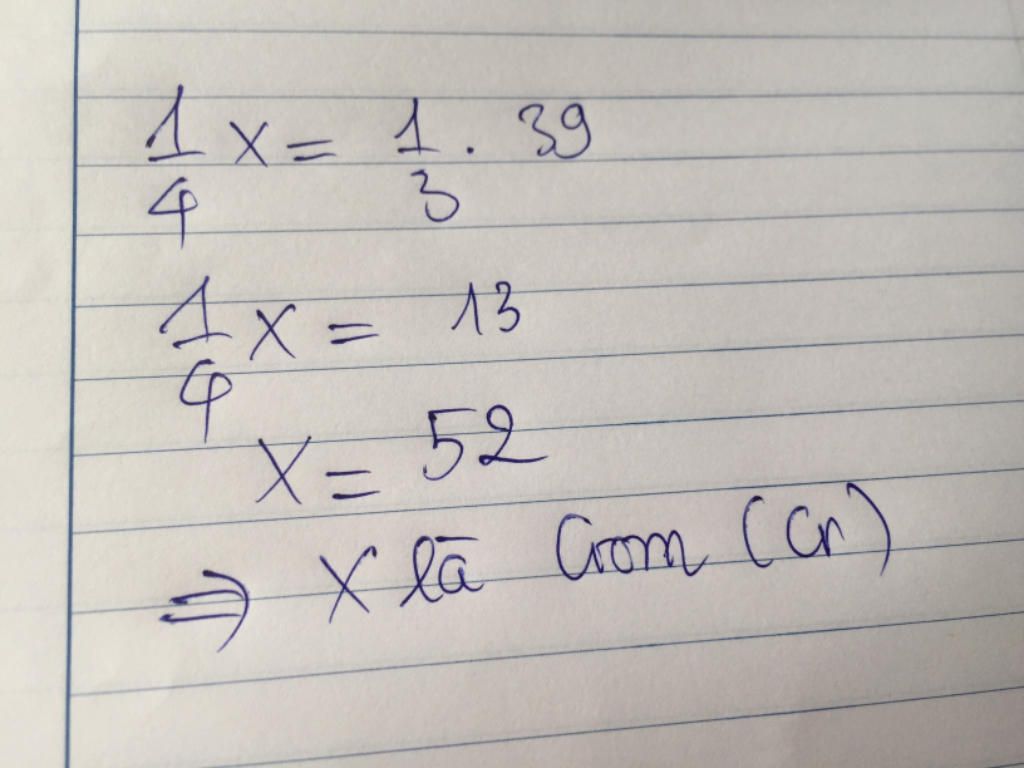 1/4 x = 1/3 . 39
1/4 x = 13
x = 52
⇒ X là Crom (Cr)